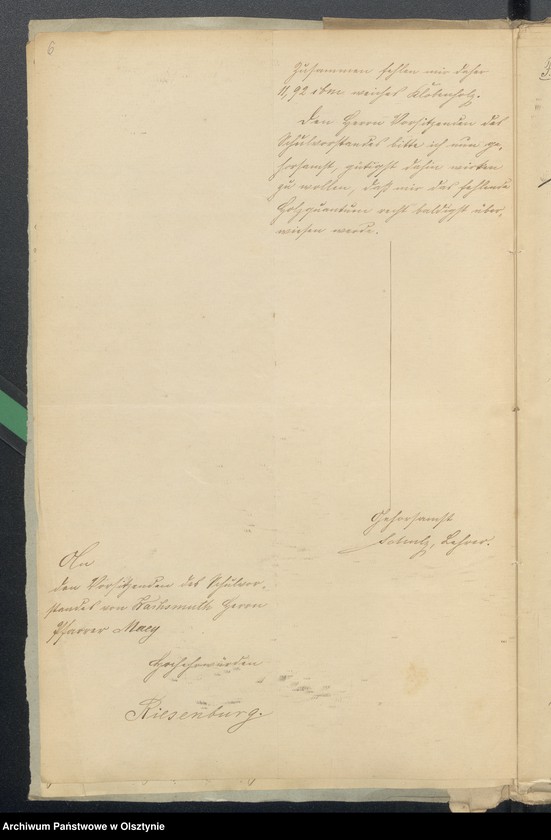 6
Zusammen fehlen mir daher
11,92 cbm weiches Klobenholz.
Den Herrn Vorsitzenden des
Schulvorstandes bitte ich nun ge-
horsamst, gütigst dahin wirken
zu wollen, daß mir das fehlende
Holzquantum recht baldigst über-
wiesen werde.
Gehorsamst
Lehrer.
An
den Vorsitzenden des Schulvor-
standes von Wachsmuth Herrn
Pfarrer Macy
Hochehrwürden
Riesenburg.
Archiwum Państwowe w Olsztynie